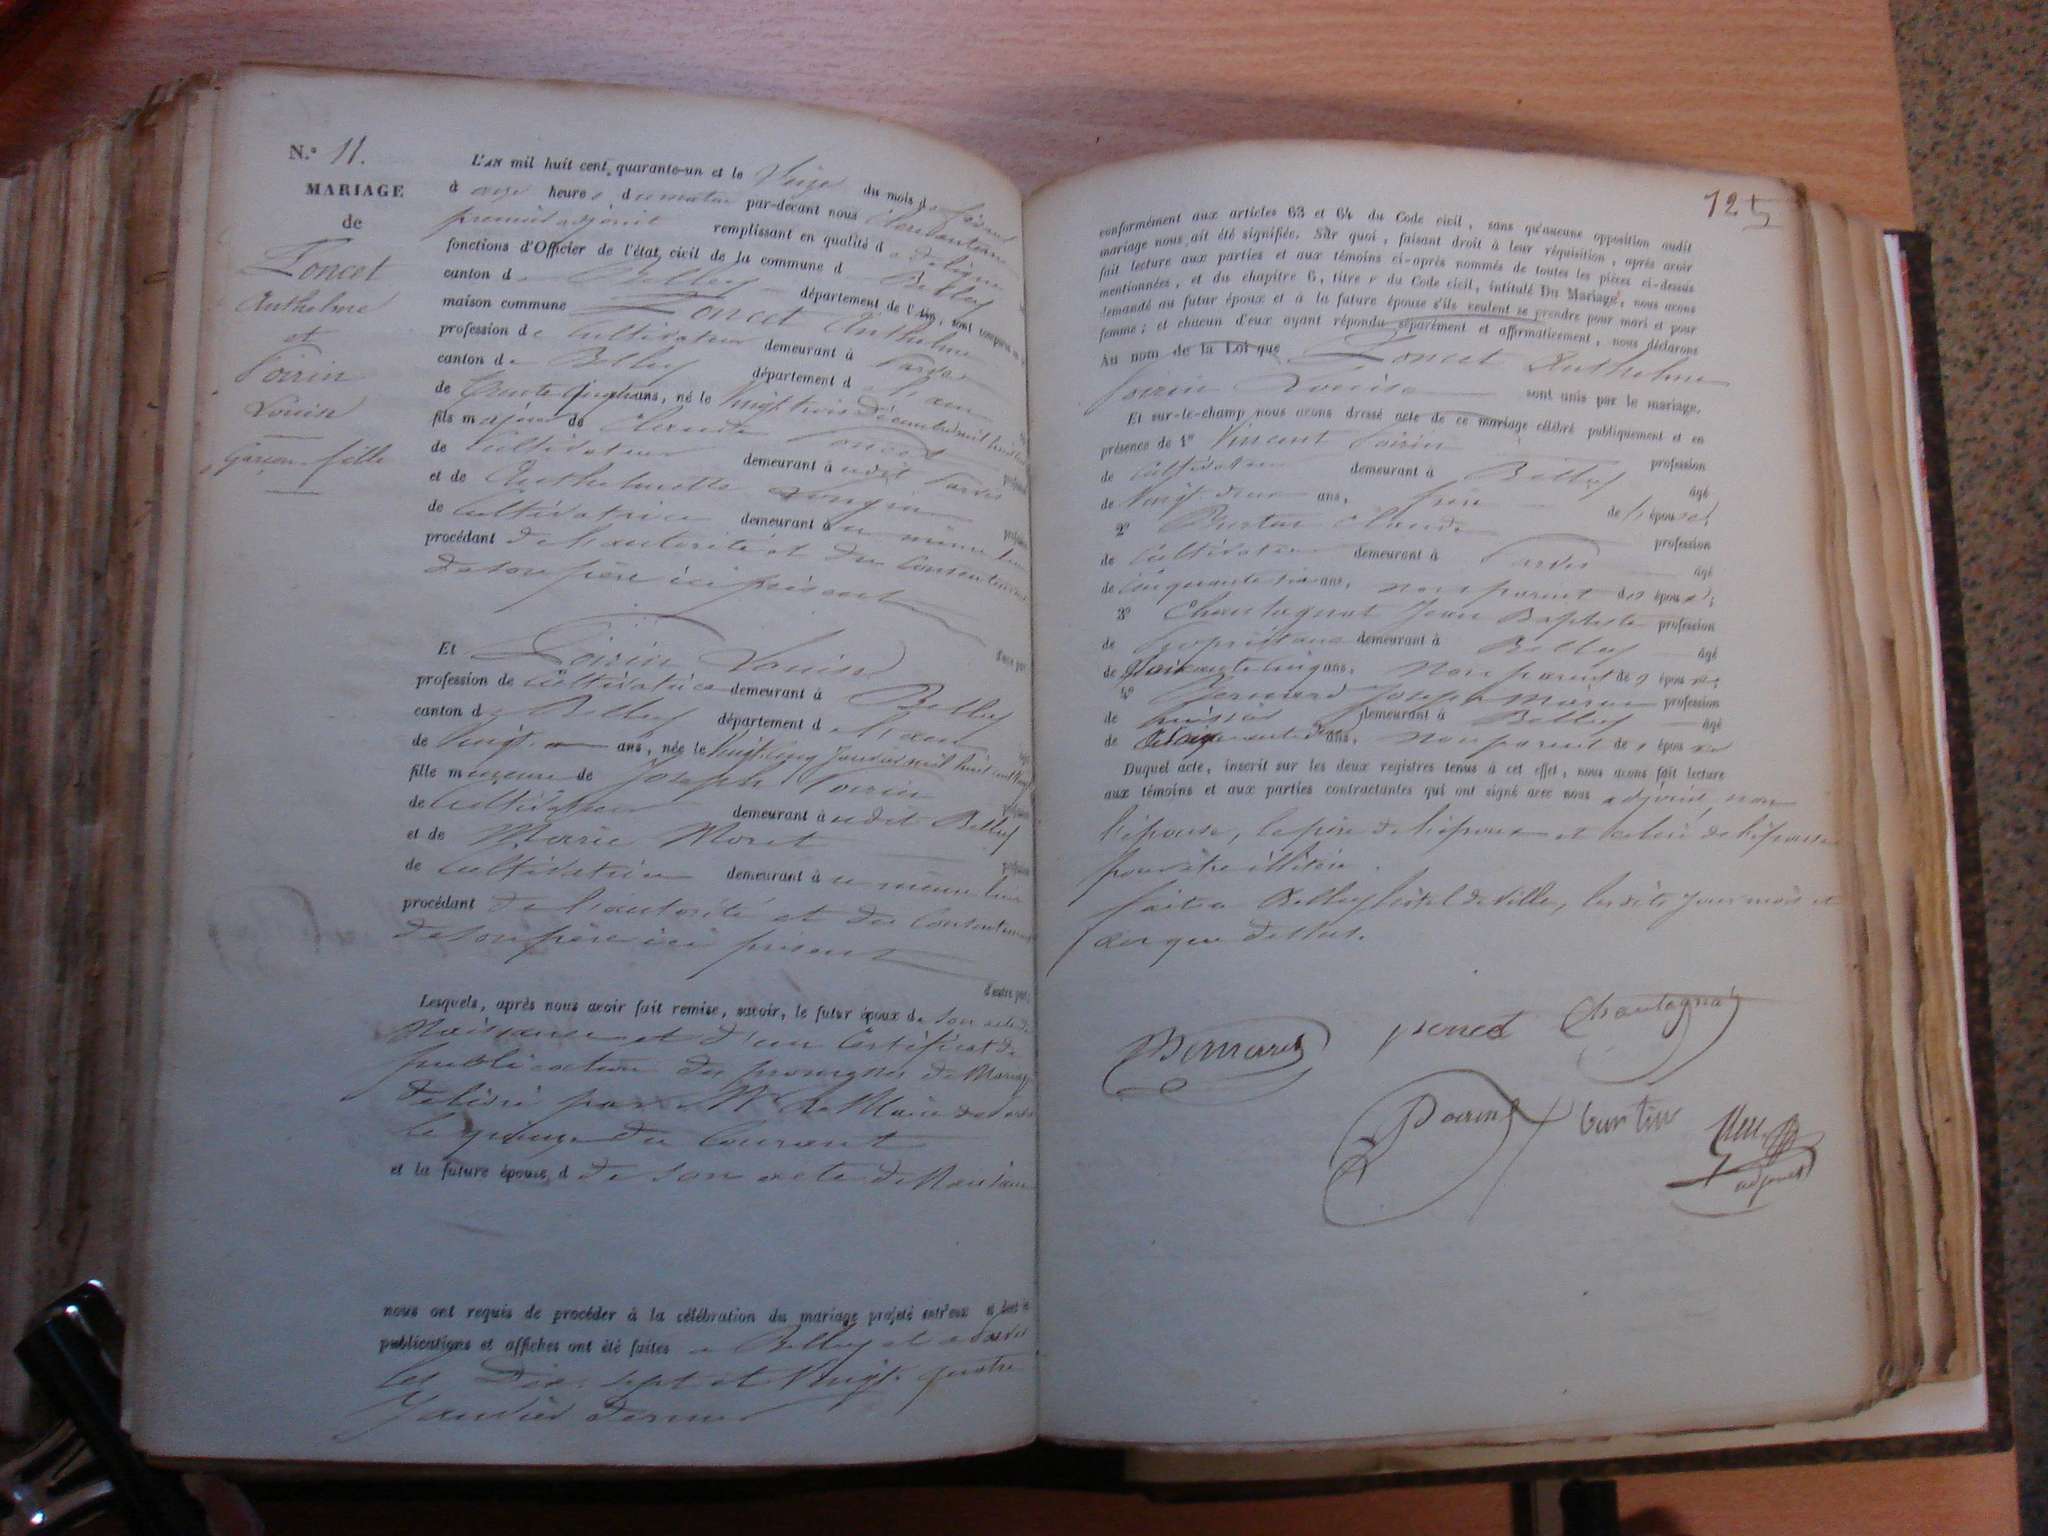 N.° 11.
MARIAGE
de
Poncet
Anthelme
et
Poirin
Louise
garçon fille
L'AN mil huit cent quarante-un et le Seize du mois de février
à onze heures du matin par-devant nous
premier adjoint remplissant en qualité de
fonctions d'Officier de l'état civil de la commune de Belley
canton de Belley département de l'Ain, sont comparus en
maison commune Poncet Anthelme
profession de Cultivateur demeurant à Parves
canton de Belley département de l'Ain
de trente ans, né le Vingt trois Décembre mil huit cent
fils majeur de Claude Poncet
de Cultivateur demeurant à udit Parves
et de Anthelmette
de Cultivatrice demeurant à u même lieu
procédant de l'autorité et du Consentement
de son père ici présent
d'une part
Et Poirin Louise
profession de Cultivatrice demeurant à Belley
canton de Belley département de l'Ain
de Vingt un ans, née le Vingt Cinq Janvier mil huit cent Vingt
fille majeure de Joseph Poirin
de Cultivateur demeurant à udit Belley
et de Marie Moret
de Cultivatrice demeurant à u même lieu
procédant de l'autorité et du Consentement
de son père ici présent
d'autre part:
Lesquels, après nous avoir fait remise, savoir, le futur époux de son acte de
Naissance et d'un Certificat de
publication des promesses de Mariage
délivré par Mr Le Maire de Parves
le quinze du Courant
et la future épouse, d de son acte de Naissance
nous ont requis de procéder à la célébration du mariage projeté entr'eux et dont les
publications et affiches ont été faites à Belley et à Parves
les Dix sept et Vingt quatre
Janvier dernier
125
conformément aux articles 63 et 64 du Code civil, sans qu'aucune opposition audit
mariage nous ait été signifiée. Sur quoi, faisant droit à leur réquisition, après avoir
fait lecture aux parties et aux témoins ci-après nommés de toutes les pièces ci-dessus
mentionnées, et du chapitre 6, titre v du Code civil, intitulé Du Mariage, nous avons
demandé au futur époux et à la future épouse s'ils veulent se prendre pour mari et pour
femme; et chacun d'eux ayant répondu séparément et affirmativement, nous déclarons
Au nom de la Loi que Poncet Anthelme
Poirin Louise sont unis par le mariage.
Et sur-le-champ nous avons dressé acte de ce mariage célébré publiquement et en
présence de 1° Vincent Poirin profession
de Cultivateur demeurant à Belley âgé
de Vingt deux ans, frère de l'épouse;
2° Burtin Claude profession
de Cultivateur demeurant à Parves âgé
de Cinquante six ans, non parent des époux;
3° Chantagnat Jean Baptiste profession
de propriétaire demeurant à Belley âgé
de Soixante cinq ans, non parent des époux;
4° Bernard Joseph Marie profession
de huissier demeurant à Belley âgé
de ans, non parent des époux
Duquel acte, inscrit sur les deux registres tenus à cet effet, nous avons fait lecture
aux témoins et aux parties contractantes qui ont signé avec nous adjoint, non
l'épouse, le père de l'époux et celui de l'épouse
pour être illitéré.
fait à Belley hôtel de Ville, les dits jour mois et
an que dessus.
Bernard
poncet
Chantagnat
Poirin
burtin
adjoint